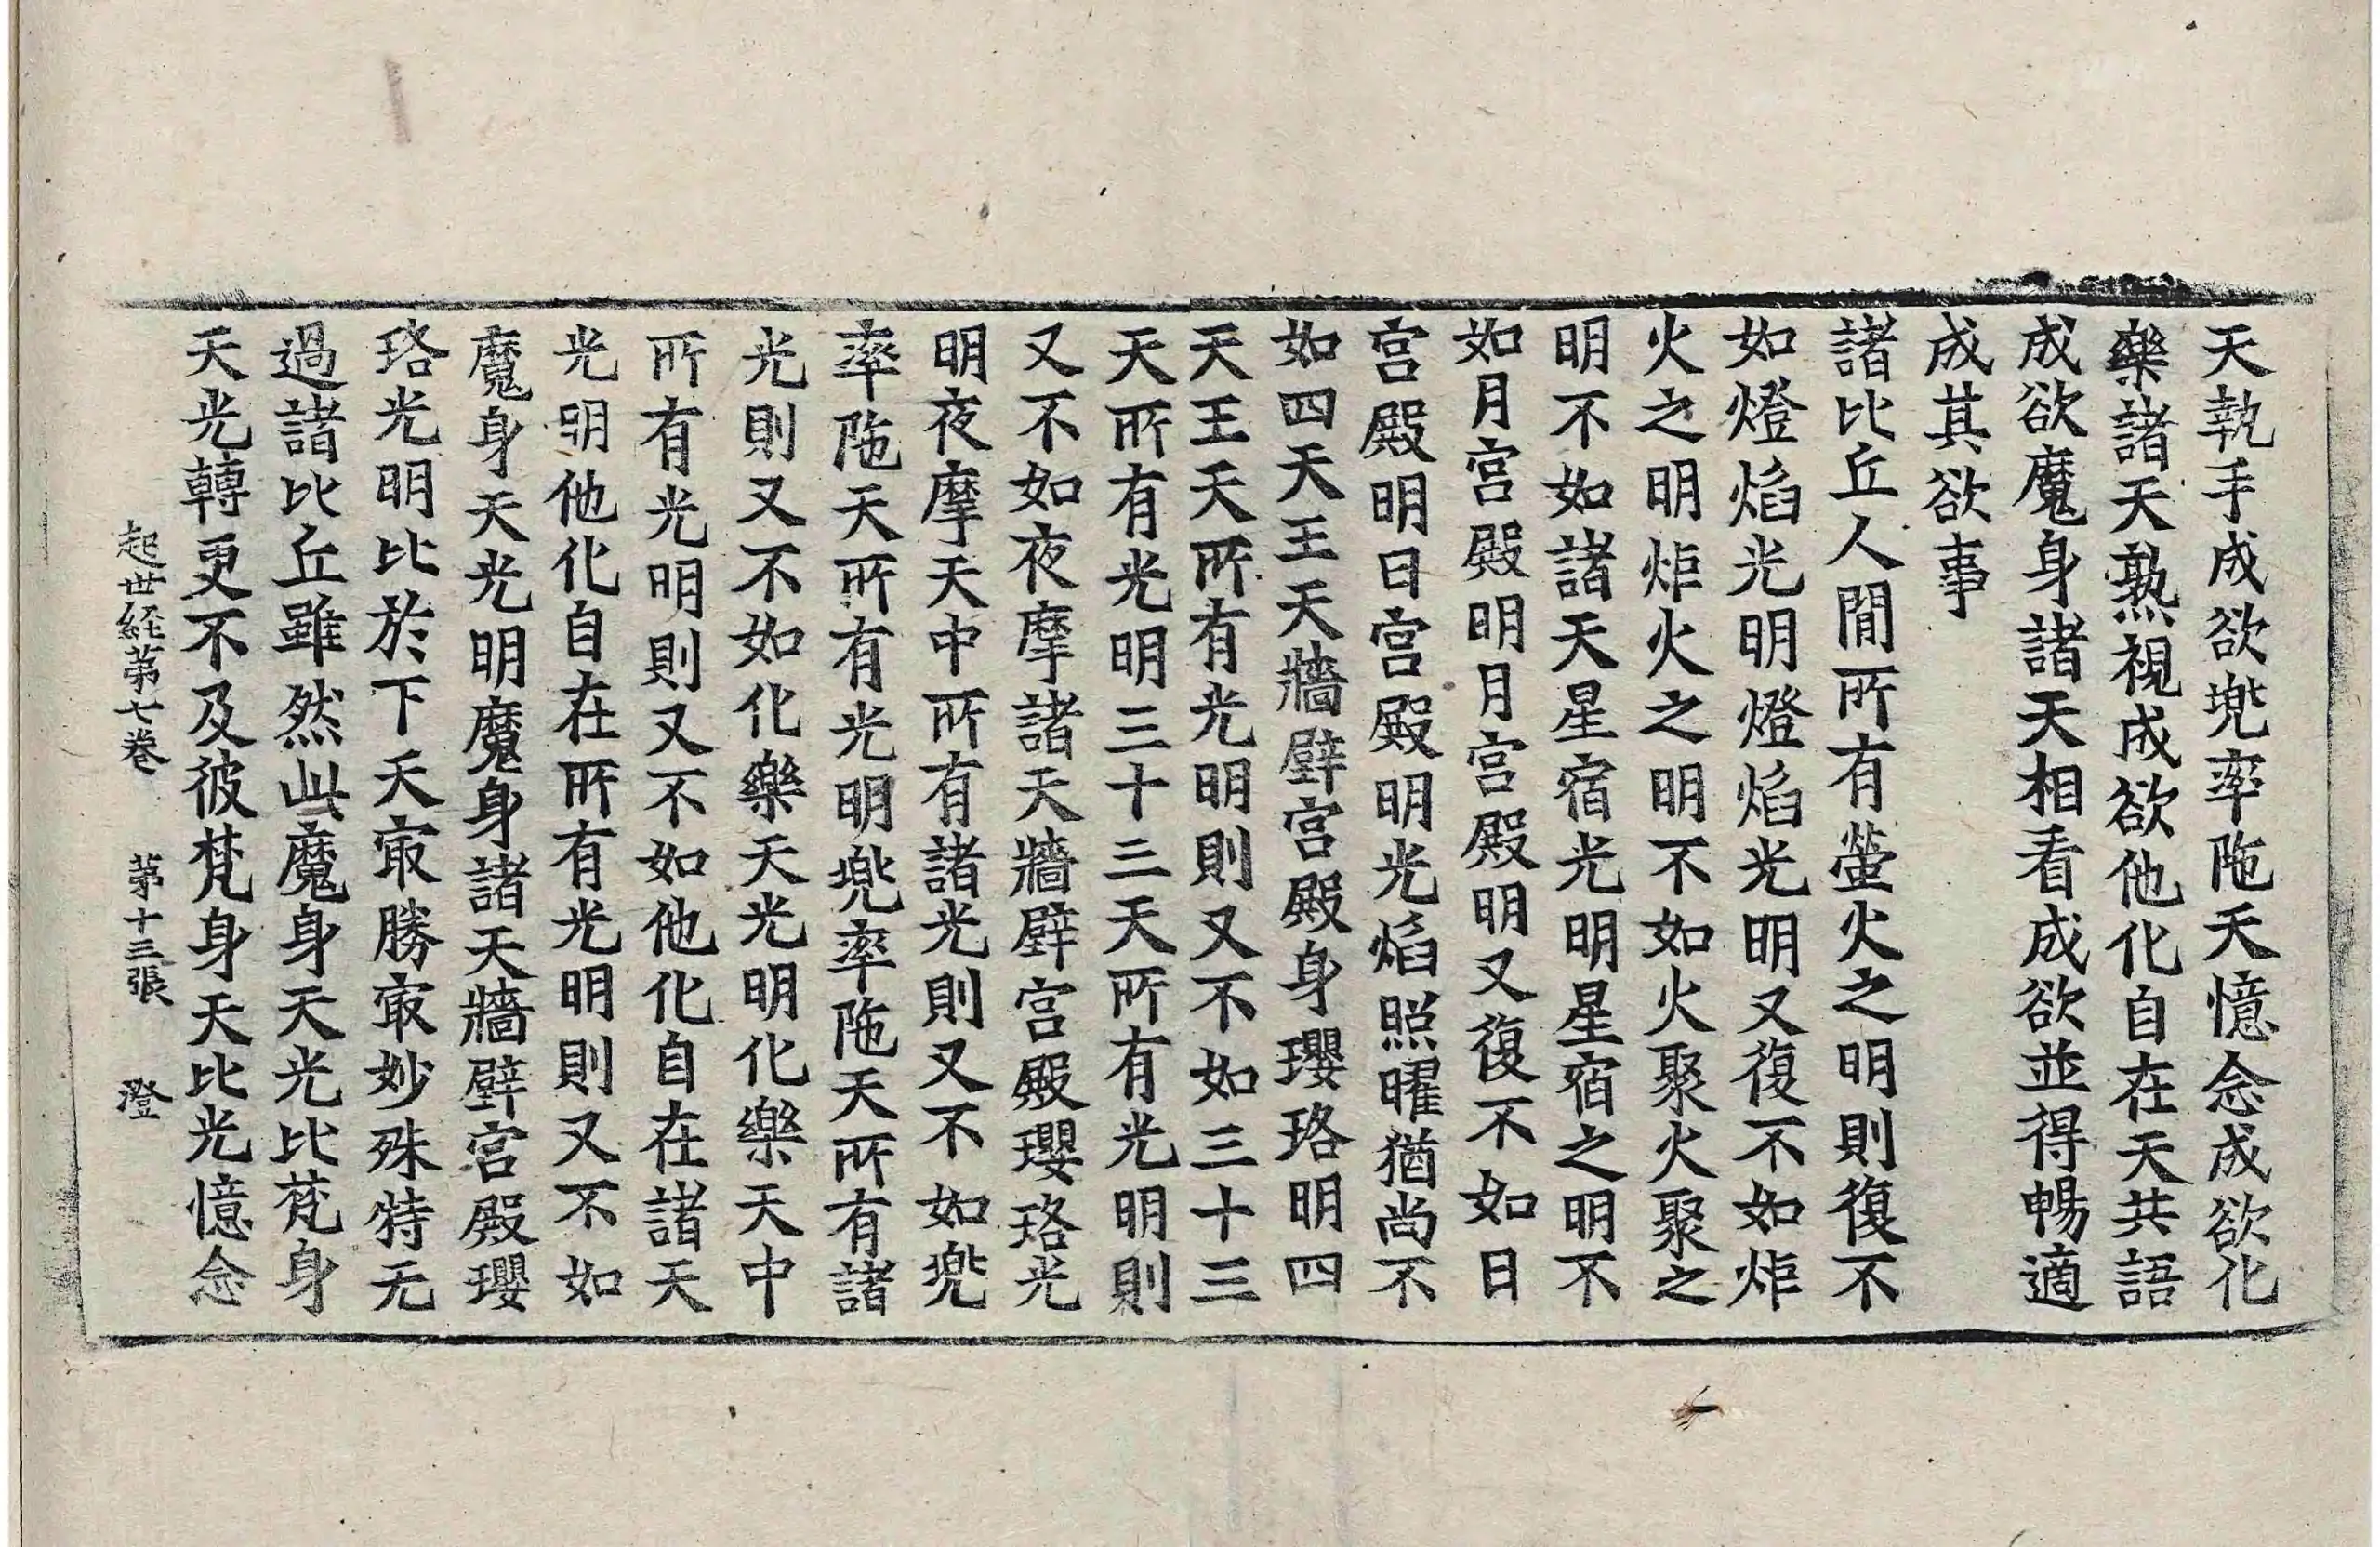 天執手成欲兠率陁天憶念成欲化
樂諸天熟視成欲他化自在天共語
成欲魔身諸天相看成欲並得暢適
成其欲事
諸比丘人間所有螢火之明則復不
如燈焰光明燈焰光明又復不如炬
火之明炬火之明不如火聚火聚之
明不如諸天星宿光明星宿之明不
如月宮殿明月宮殿明又復不如日
宮殿明日宮殿明光焰照曜猶尚不
如四天王天牆壁宮殿身瓔珞明四
天王天所有光明則又不如三十三
天所有光明三十三天所有光明則
又不如夜摩諸天牆壁宮殿瓔珞光
明夜摩天中所有諸光則又不如兠
率陁天所有光明兠率陁天所有諸
光則又不如化樂天光明化樂天中
所有光明則又不如他化自在諸天
光明他化自在所有光明則又不如
魔身天光明魔身諸天牆壁宮殿瓔
珞光明比於下天㝡勝㝡妙殊特无
過諸比丘雖然此魔身天光比梵身
天光轉更不及彼梵身天比光憶念
起世経第七卷 第十三張 澄